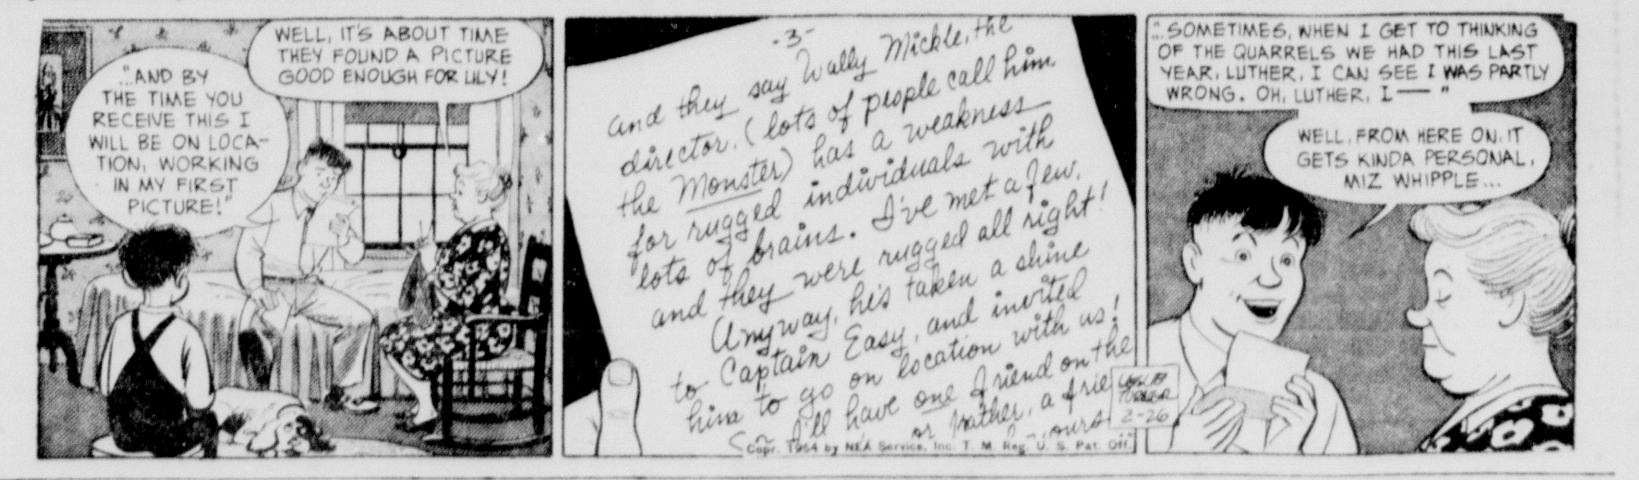 "..AND BY
THE TIME YOU
RECEIVE THIS I
WILL BE ON LOCA-
TION, WORKING
IN MY FIRST
PICTURE!"
WELL, IT'S ABOUT TIME
THEY FOUND A PICTURE
GOOD ENOUGH FOR LILY!
-3-
and they say Wally Mickle, the
director, (lots of people call him
the Monster) has a weakness
for rugged individuals with
lots of brains. I've met a few,
and they were rugged all right!
Anyway, he's taken a shine
to Captain Easy, and invited
him to go on location with us!
So I'll have one friend on the
or rather, a frie
yours
LESLIE
TURNER
2-26
Copr. 1954 by NEA Service, Inc. T. M. Reg. U. S. Pat. Off.
"..SOMETIMES, WHEN I GET TO THINKING
OF THE QUARRELS WE HAD THIS LAST
YEAR, LUTHER, I CAN SEE I WAS PARTLY
WRONG. OH, LUTHER, I — "
WELL, FROM HERE ON, IT
GETS KINDA PERSONAL,
MIZ WHIPPLE...